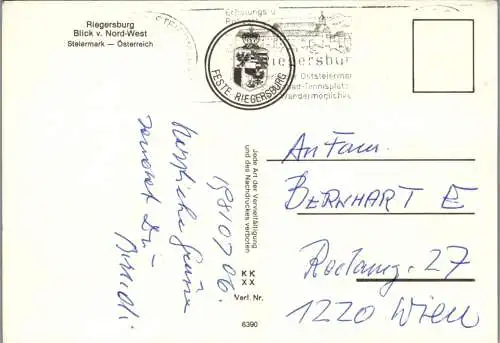 Riegersburg
Blick v. Nord-West
Steiermark — Österreich
Erholungs u
Riegersbur
Oststeiermar
ad-Tennisplatz
Wandermöglichk
FESTE RIEGERSBURG
Jede Art der Vervielfältigung
und des Nachdruckes verboten
KK
XX
Verl. Nr.
8390
19810706.
Herzliche Grüsse
An Fam.
BERNHART E
27
1220 Wien